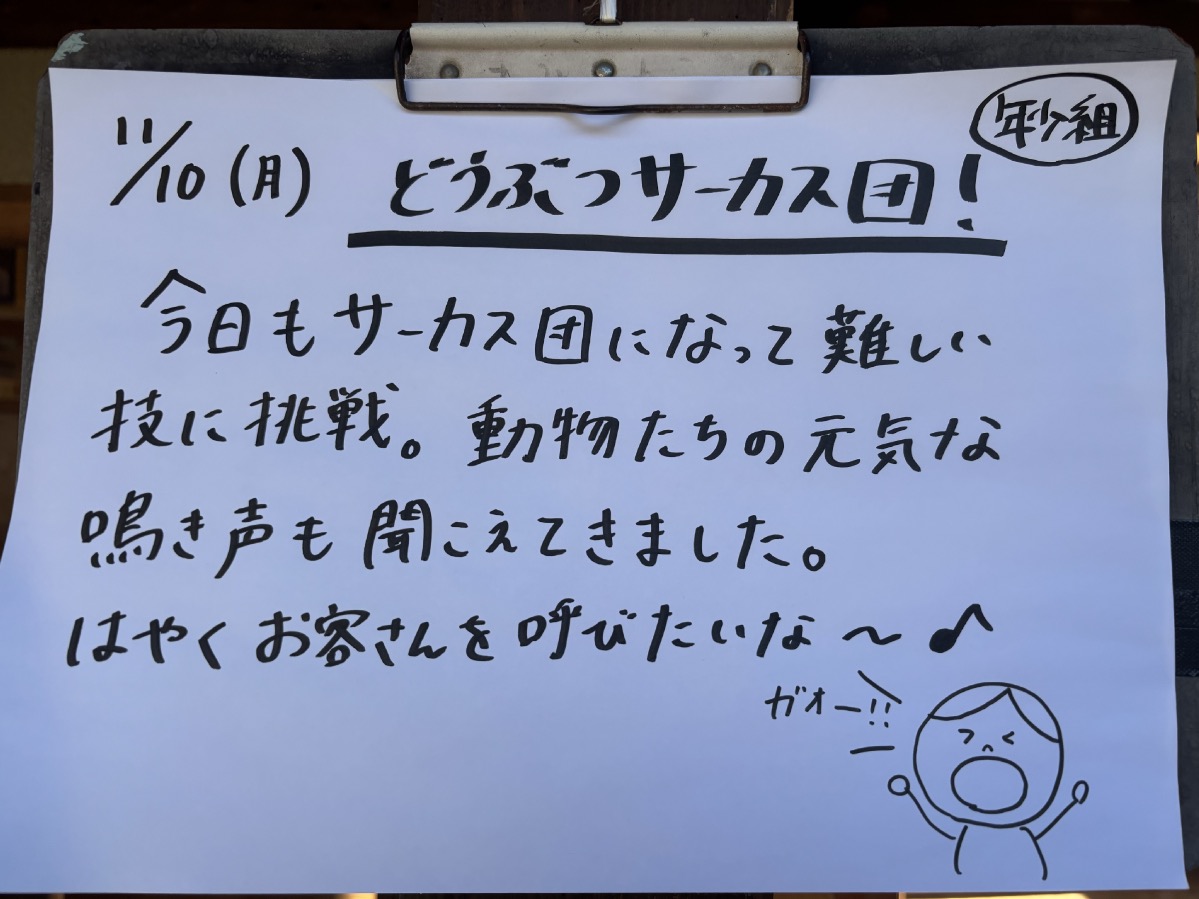 年少組
11/10(月) どうぶつサーカス団!
今日もサーカス団になって難しい
技に挑戦。動物たちの元気な
鳴き声も聞こえてきました。
はやくお客さんを呼びたいな〜♪
ガオー!!